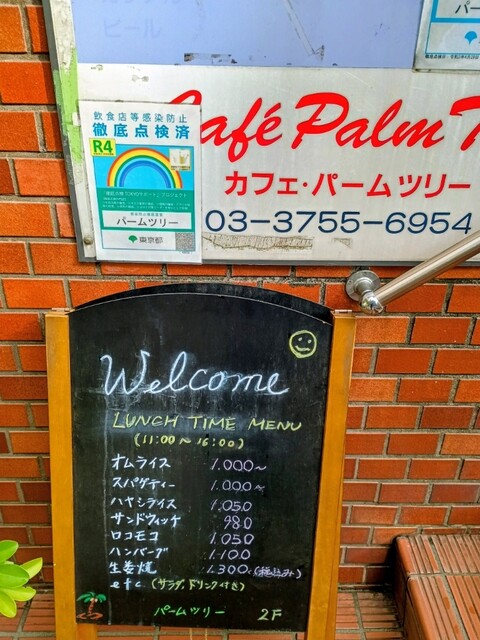 ビール
Café Palm T
カフェ・パームツリー
03-3755-6954
飲食店等感染防止
徹底点検済
R4
パームツリー
東京都
Welcome
LUNCH TIME MENU
(11:00〜16:00)
オムライス 1.000〜
スパゲティー 1.000〜
ハヤシライス 1.050
サンドウィッチ 980
ロコモコ 1.050
ハンバーグ 1.100
生姜焼 1.300 (税込み)
etc (サラダ、ドリンク付き)
パームツリー 2F